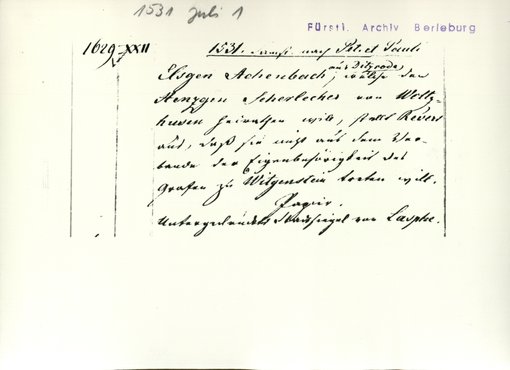 1531 Juli 1
Fürstl. Archiv Berleburg
1629-XXII
1531. nach Petri et Pauli
aus Ditzrode,
Elsgen Achenbach, welche den
Henzgen Scherlecher von Weltz-
husen heirathen will, stellt Revers
aus, daß sie nicht aus dem Ver-
bande der Eigenbehörigkeit des
Grafen zu Witgenstein treten will.
Papier.
Untergedrücktes Stadtsiegel von Laasphe.